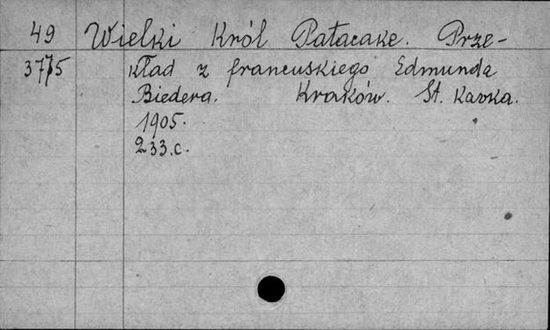 49 Wielki Król Patacake. Prze-
3775 kład z francuskiego Edmunda
Biedera. Kraków. St. Kavka.
1905.
233.c.